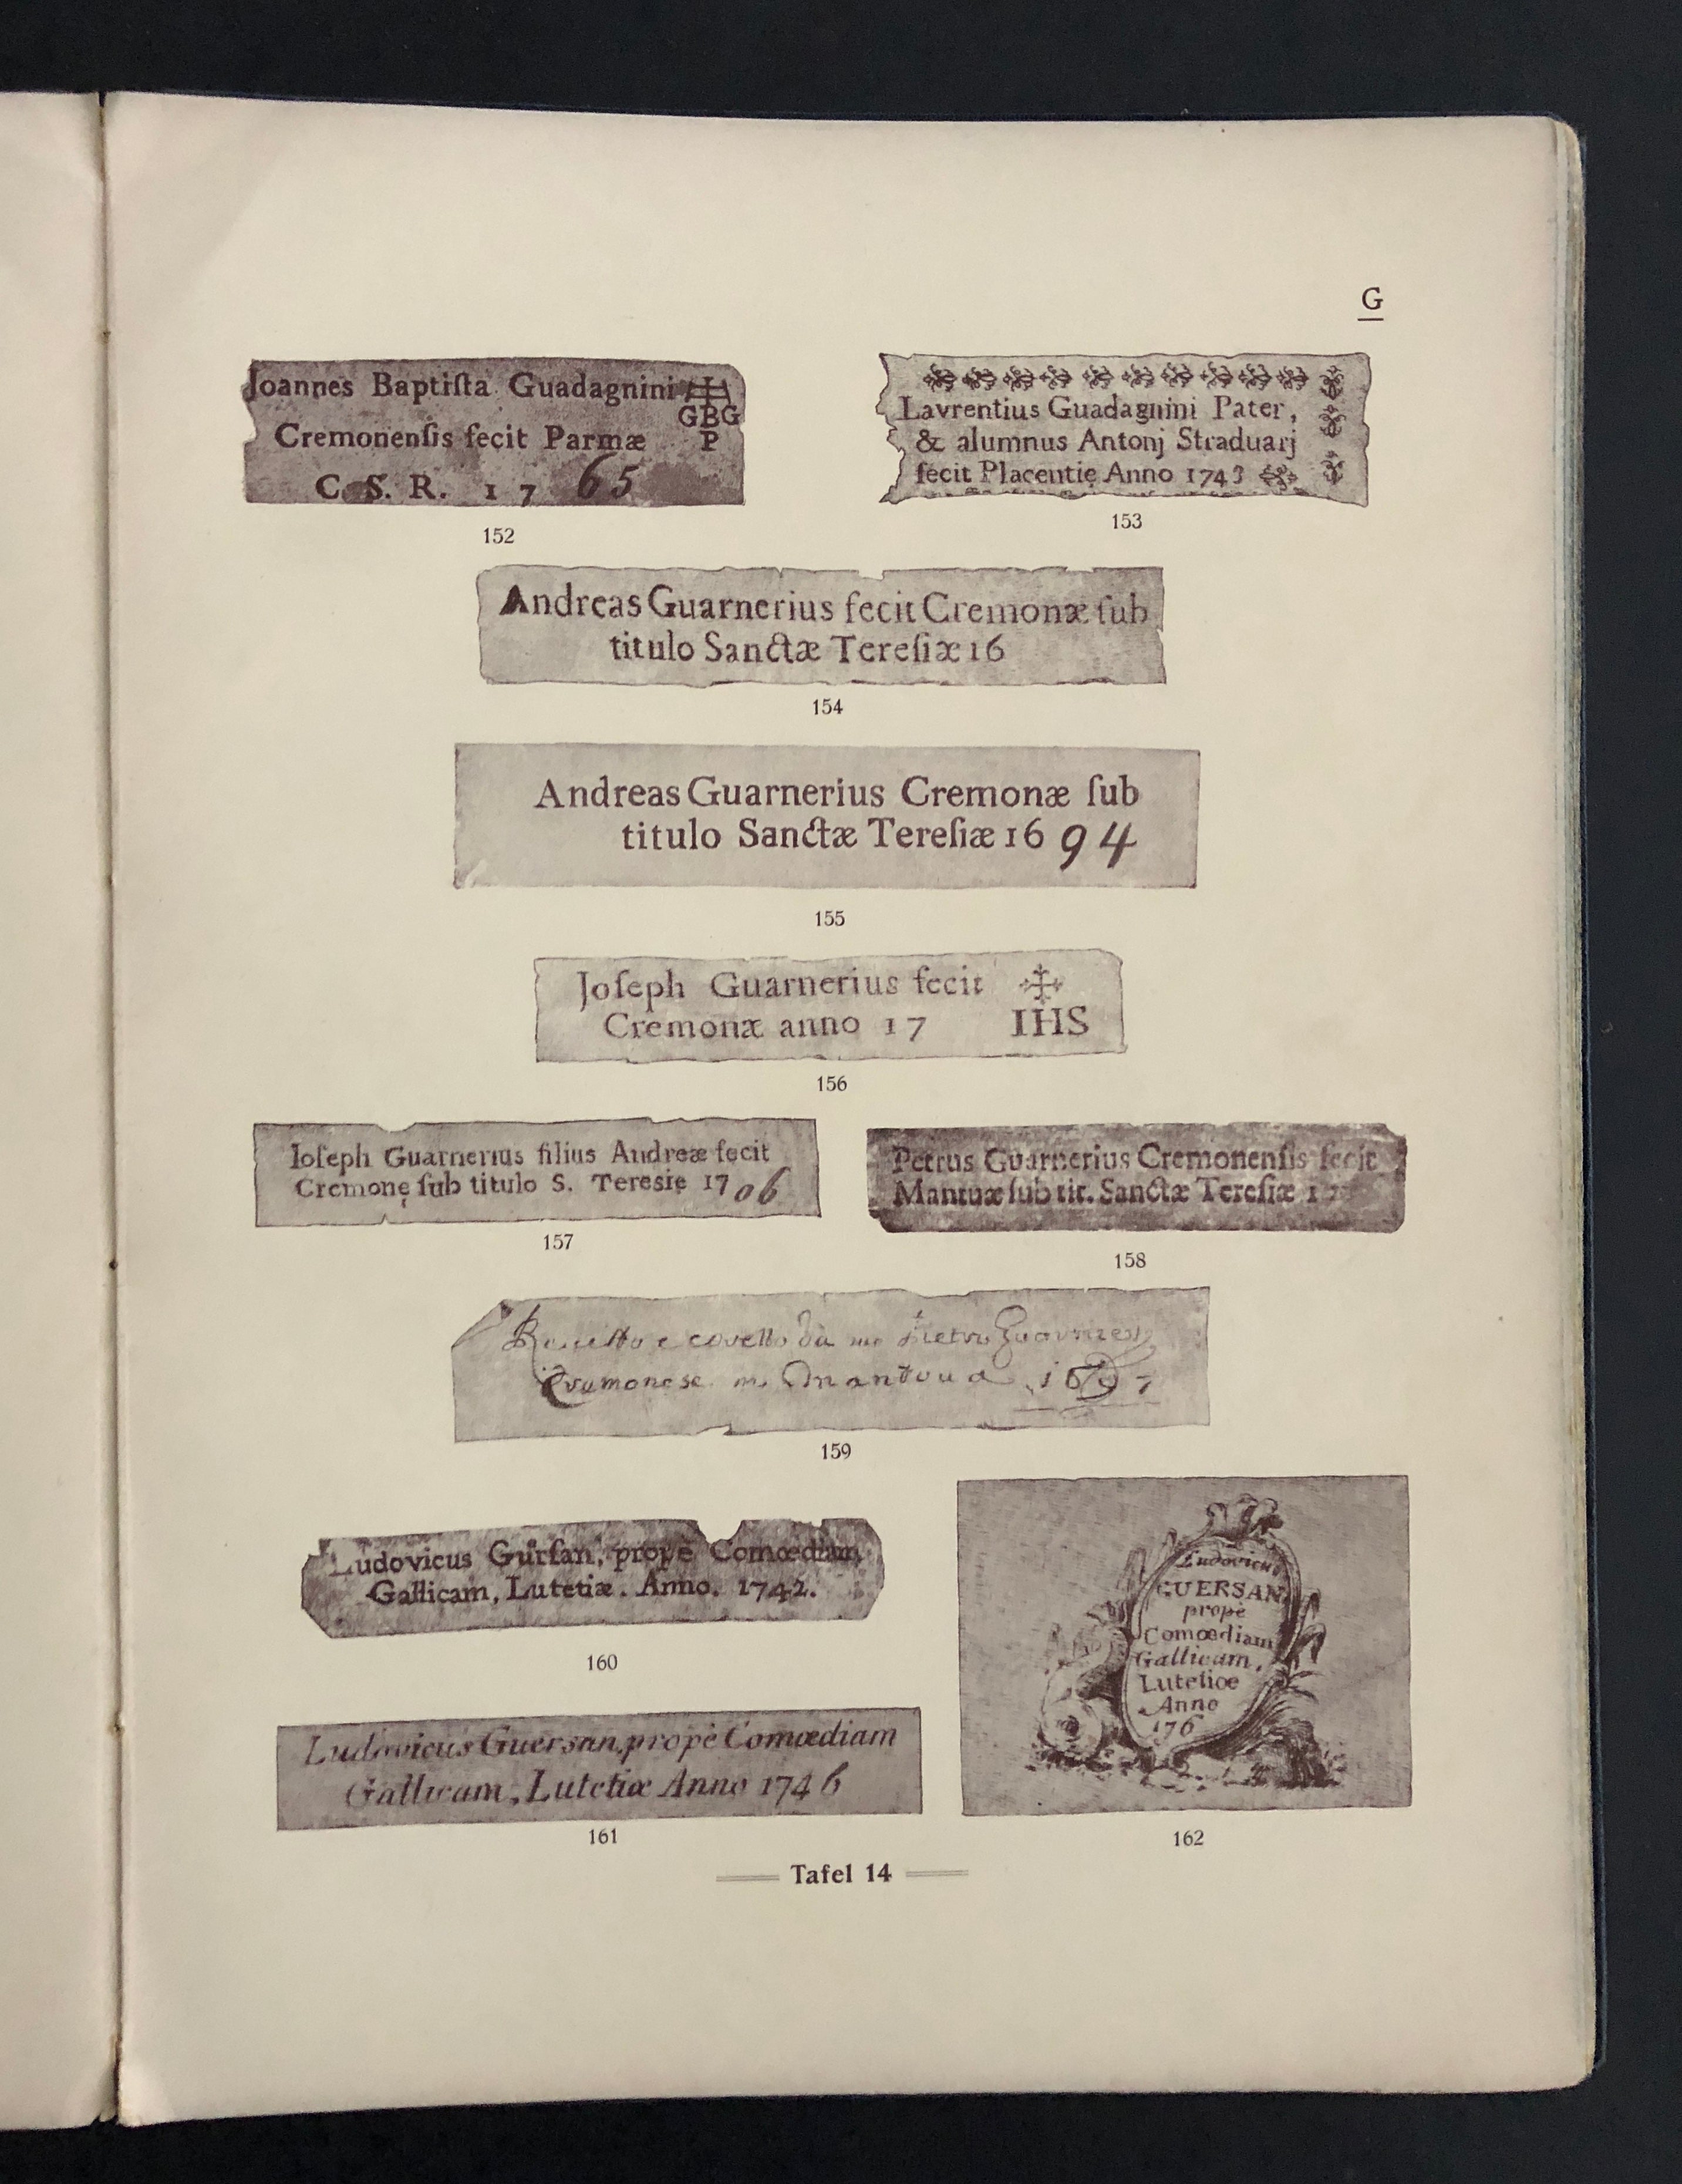 G
Joannes Baptiſta Guadagnini
GBG
Cremonenſis fecit Parmæ P
C. S. R. 1765
152
Lavrentius Guadagnini Pater,
& alumnus Antonj Straduarj
fecit Placentię Anno 1743
153
Andreas Guarnerius fecit Cremonæ ſub
titulo Sanctæ Tereſiæ 16
154
Andreas Guarnerius Cremonæ ſub
titulo Sanctæ Tereſiæ 1694
155
Joſeph Guarnerius fecit
Cremonæ anno 17 IHS
156
Ioſeph Guarnerius filius Andreæ fecit
Cremonę ſub titulo S. Teresię 1706
157
Petrus Guarnerius Cremonenſis fecit
Mantuæ ſub tit. Sanctæ Tereſiæ 17
158
e da me Pietro
Cremonese in Mantoua
159
Ludovicus Gürſan, propè Comœdiam
Gallicam, Lutetiæ. Anno. 1742.
160
Ludovicus Guersan, propè Comœdiam
Gallicam, Lutetiæ Anno 1746
161
Ludovicus
GUERSAN
propè
Comœdiam
Gallicam,
Lutetiœ
Anno
176
162
Tafel 14